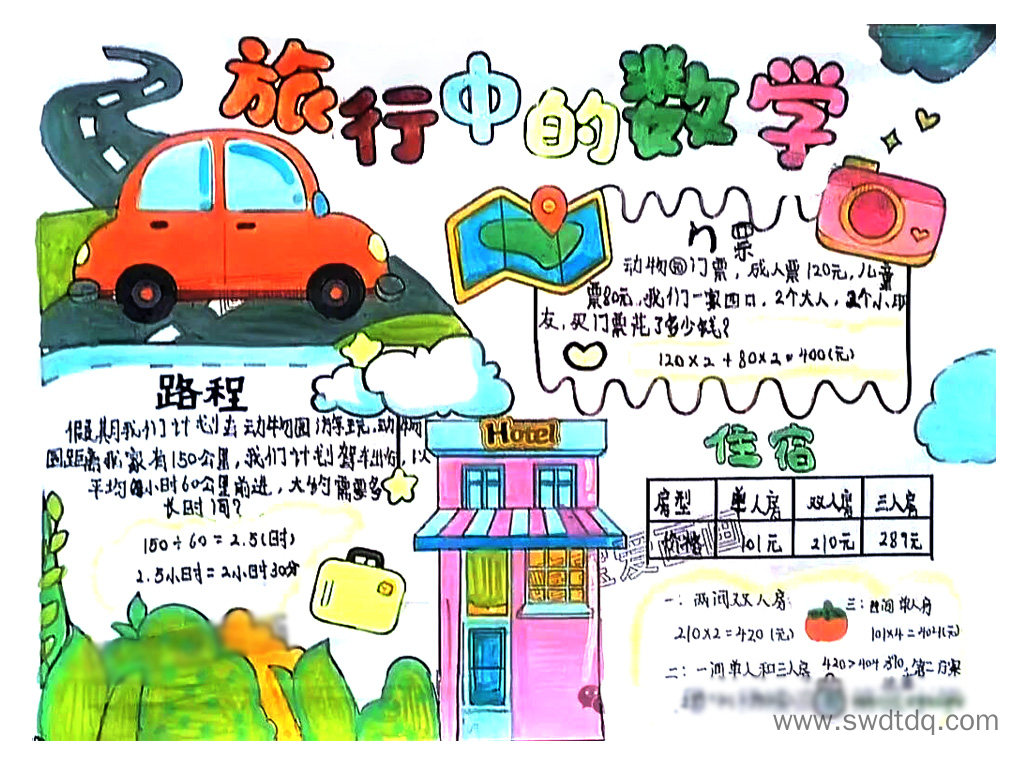 旅行中的数学
门票
动物园门票，成人票120元，儿童
票80元，我们一家四口，2个大人，2个小朋
友，买门票花了多少钱？
120×2+80×2=400(元)
路程
假期我们计划去动物园游玩，动物
园距离我家有150公里，我们计划驾车出行，以
平均每小时60公里前进，大约需要多
长时间？
150÷60=2.5(时)
2.5小时=2小时30分
Hotel
住宿
房型 单人房 双人房 三人房
价格 101元 210元 289元
一：两间双人房
210×2=420(元)
三：四间单人房
101×4=404(元)
二：一间单人和三人房
420>404
www.swdtdq.com